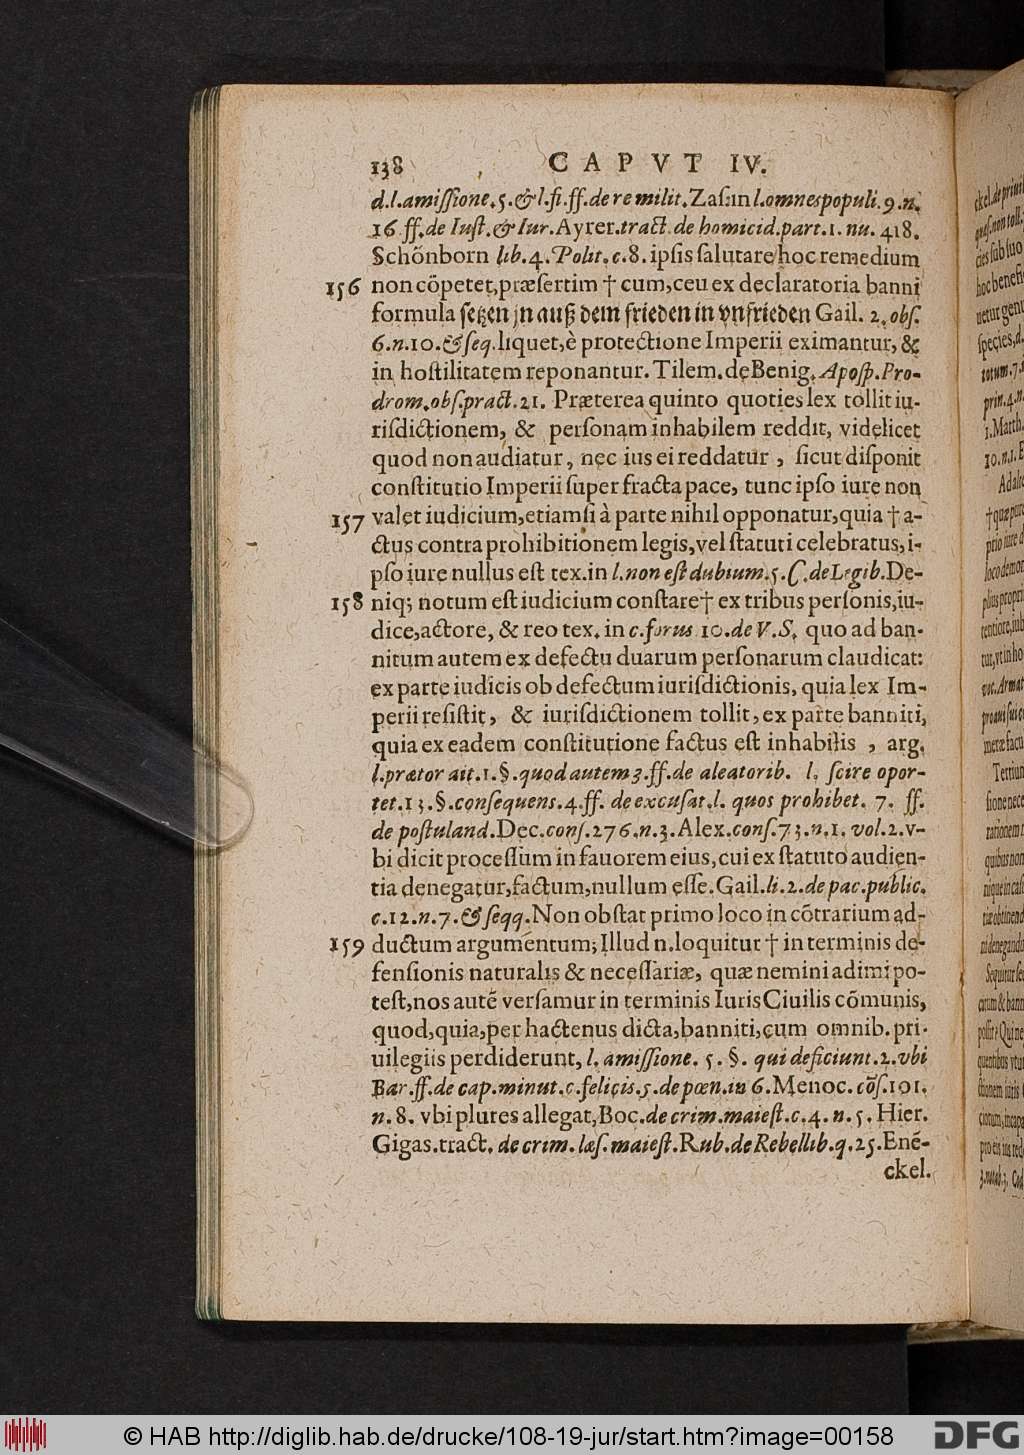 138 CAPVT IV.
d.l.amiſſione.5.&l.fi.ff.de re milit.Zaſ:in l.omnes populi.9.n.
16 ff.de Iuſt.&Iur.Ayrer.tract.de homicid.part.1.nu. 418.
Schönborn lib.4.Polit.c.8. ipſis ſalutare hoc remedium
156 non cõpetet,præſertim † cum,ceu ex declaratoria banni
formula ſetzen jn auß dem frieden in vnfrieden Gail. 2.obſ.
6.n.10.&ſeq.liquet,è protectione Imperii eximantur, &
in hoſtilitatem reponantur. Tilem.deBenig.Apoſp.Pro-
drom.obſ.pract.21. Præterea quinto quoties lex tollit iu-
riſdictionem, & perſonam inhabilem reddit, videlicet
quod non audiatur, nec ius ei reddatur, ſicut diſponit
conſtitutio Imperii ſuper fracta pace, tunc ipſo iure non
157 valet iudicium,etiamſi à parte nihil opponatur,quia † a-
ctus contra prohibitionem legis,vel ſtatuti celebratus,i-
pſo iure nullus eſt tex.in l.non eſt dubium.5.C.de Legib.De-
158 niq; notum eſt iudicium conſtare† ex tribus perſonis,iu-
dice,actore, & reo tex. in c.forus 10.de V.S. quo ad ban-
nitum autem ex defectu duarum perſonarum claudicat:
ex parte iudicis ob defectum iuriſdictionis, quia lex Im-
perii reſiſtit, & iuriſdictionem tollit, ex parte banniti,
quia ex eadem conſtitutione factus eſt inhabilis, arg.
l.prætor ait.1.§.quod autem 3.ff.de aleatorib. l. ſcire opor-
tet.13.§.conſequens.4.ff. de excuſat.l. quos prohibet. 7. ff.
de poſtuland.Dec.conſ.276.n.3.Alex.conſ.73.n.1. vol.2.v-
bi dicit proceſſum in fauorem eius,cui ex ſtatuto audien-
tia denegatur,factum,nullum eſſe.Gail.li.2.de pac.public.
c.12.n.7.&ſeqq.Non obſtat primo loco in cõtrarium ad-
159 ductum argumentum; Illud n.loquitur † in terminis de-
fenſionis naturalis & neceſſariæ, quæ nemini adimi po-
teſt,nos autẽ verſamur in terminis Iuris Ciuilis cõmunis,
quod,quia,per hactenus dicta,banniti,cum omnib. pri-
uilegiis perdiderunt, l. amiſſione. 5. §. qui deficiunt.2.vbi
Bar.ff.de cap.minut.c.felicis.5.de pœn.in 6.Menoc.cõſ.101.
n.8. vbi plures allegat,Boc.de crim.maieſt.c.4.n.5. Hier.
Gigas.tract. de crim.læſ.maieſt.Rub.de Rebellib.q.25.Enẽ-
ckel.
© HAB http://diglib.hab.de/drucke/108-19-jur/start.htm?image=00158
DFG